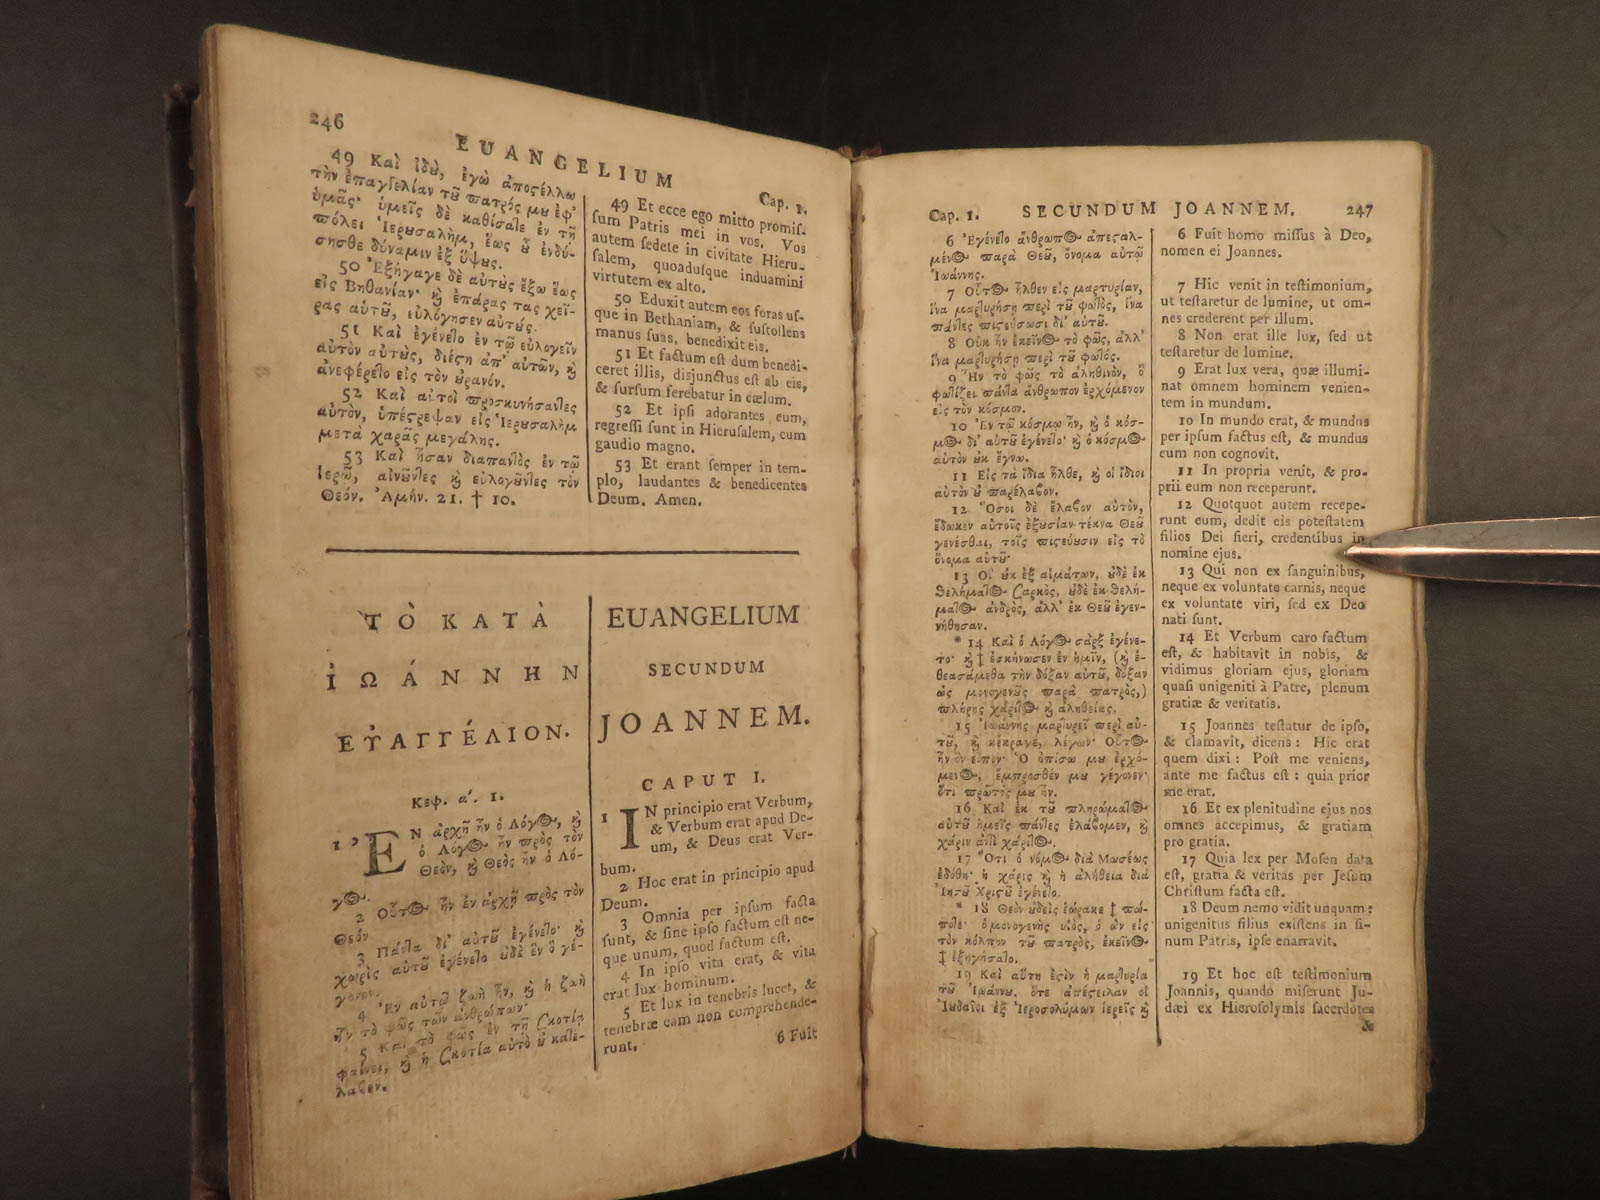 246
EUANGELIUM
Cap. 1.
49 Καὶ ἰδού, ἐγὼ ἀποστέλλω
τὴν ἐπαγγελίαν τοῦ πατρός μου ἐφ'
ὑμᾶς· ὑμεῖς δὲ καθίσατε ἐν τῇ
πόλει Ἱερουσαλὴμ, ἕως οὗ ἐνδύ-
σησθε δύναμιν ἐξ ὕψους.
50 Ἐξήγαγε δὲ αὐτοὺς ἔξω ἕως
εἰς Βηθανίαν· καὶ ἐπάρας τας χεῖ-
ρας αὐτοῦ, εὐλόγησεν αὐτούς.
51 Καὶ ἐγένετο ἐν τῷ εὐλογεῖν
αὐτὸν αὐτοὺς, διέστη ἀπ' αὐτῶν, καὶ
ἀνεφέρετο εἰς τὸν οὐρανόν.
52 Καὶ αὐτοὶ προσκυνήσαντες
αὐτὸν, ὑπέστρεψαν εἰς Ἱερουσαλὴμ
μετὰ χαρᾶς μεγάλης.
53 Καὶ ἦσαν διαπαντὸς ἐν τῷ
ἱερῷ, αἰνοῦντες καὶ εὐλογοῦντες τὸν
Θεόν. Ἀμήν. 21. † 10.
49 Et ecce ego mitto promiſ-
ſum Patris mei in vos. Vos
autem ſedete in civitate Hieru-
ſalem, quoaduſque induamini
virtutem ex alto.
50 Eduxit autem eos foras uſ-
que in Bethaniam, & ſuſtollens
manus ſuas, benedixit eis.
51 Et factum eſt dum benedi-
ceret illis, disjunctus eſt ab eis,
& ſurſum ferebatur in cælum.
52 Et ipſi adorantes eum,
regreſſi ſunt in Hieruſalem, cum
gaudio magno.
53 Et erant ſemper in tem-
plo, laudantes & benedicentes
Deum. Amen.
ΤὸΚΑΤᾺ
ἸΩΆΝΝΗΝ
ΕΥ̓ΑΓΓΈΛΙΟΝ.
Κεφ. α΄. 1.
1 ἘΝ ἀρχῇ ἦν ὁ Λόγος, καὶ
ὁ Λόγος ἦν πρὸς τὸν
Θεὸν, καὶ Θεὸς ἦν ὁ Λό-
γος.
2 Οὗτος ἦν ἐν ἀρχῇ πρὸς τὸν
Θεόν.
3 Πάντα δι' αὐτοῦ ἐγένετο· καὶ
χωρὶς αὐτοῦ ἐγένετο οὐδὲ ἓν ὃ γέ-
γονεν.
4 Ἐν αὐτῷ ζωὴ ἦν, καὶ ἡ ζωὴ
ἦν τὸ φῶς τῶν ἀνθρώπων·
5 Καὶ τὸ φῶς ἐν τῇ Σκοτίᾳ
φαίνει, καὶ ἡ Σκοτία αὐτὸ οὐ κατέ-
λαβεν.
EUANGELIUM
SECUNDUM
JOANNEM.
CAPUT I.
1 IN principio erat Verbum,
& Verbum erat apud De-
um, & Deus erat Ver-
bum.
2 Hoc erat in principio apud
Deum.
3 Omnia per ipſum facta
ſunt, & ſine ipſo factum eſt ne-
que unum, quod factum eſt.
4 In ipſo vita erat, & vita
erat lux hominum.
5 Et lux in tenebris lucet, &
tenebræ eam non comprehende-
runt.
6 Fuit
Cap. 1.
SECUNDUM JOANNEM.
247
6 Ἐγένετο ἄνθρωπος ἀπεσταλ-
μένος παρὰ Θεοῦ, ὄνομα αὐτῷ
Ἰωάννης.
7 Οὗτος ἦλθεν εἰς μαρτυρίαν,
ἵνα μαρτυρήσῃ περὶ τοῦ φωτὸς, ἵνα
πάντες πιστεύσωσι δι' αὐτοῦ.
8 Οὐκ ἦν ἐκεῖνος τὸ φῶς, ἀλλ'
ἵνα μαρτυρήσῃ περὶ τοῦ φωτός.
9 Ἦν τὸ φῶς τὸ ἀληθινὸν, ὃ
φωτίζει πάντα ἄνθρωπον ἐρχόμενον
εἰς τὸν κόσμον.
10 Ἐν τῷ κόσμῳ ἦν, καὶ ὁ κόσ-
μος δι' αὐτοῦ ἐγένετο· καὶ ὁ κόσμος
αὐτὸν οὐκ ἔγνω.
11 Εἰς τὰ ἴδια ἦλθε, καὶ οἱ ἴδιοι
αὐτὸν οὐ παρέλαβον.
12 Ὅσοι δὲ ἔλαβον αὐτὸν,
ἔδωκεν αὐτοῖς ἐξουσίαν τέκνα Θεοῦ
γενέσθαι, τοῖς πιστεύουσιν εἰς τὸ
ὄνομα αὐτοῦ·
13 Οἳ οὐκ ἐξ αἱμάτων, οὐδὲ ἐκ
θελήματος Σαρκὸς, οὐδὲ ἐκ θελή-
ματος ἀνδρὸς, ἀλλ' ἐκ Θεοῦ ἐγεν-
νήθησαν.
* 14 Καὶ ὁ Λόγος σὰρξ ἐγένε-
το· καὶ ‡ ἐσκήνωσεν ἐν ἡμῖν, (καὶ ἐ-
θεασάμεθα τὴν δόξαν αὐτοῦ, δόξαν
ὡς μονογενοῦς παρὰ πατρὸς,)
πλήρης χάριτος καὶ ἀληθείας.
15 Ἰωάννης μαρτυρεῖ περὶ αὐ-
τοῦ, καὶ κέκραγε, λέγων· Οὗτος
ἦν ὃν εἶπον· Ὁ ὀπίσω μου ἐρχό-
μενος, ἔμπροσθέν μου γέγονεν·
ὅτι πρῶτός μου ἦν.
16 Καὶ ἐκ τοῦ πληρώματος
αὐτοῦ ἡμεῖς πάντες ἐλάβομεν, καὶ
χάριν ἀντὶ χάριτος.
17 Ὅτι ὁ νόμος διὰ Μωσέως
ἐδόθη· ἡ χάρις καὶ ἡ ἀλήθεια διὰ
Ἰησοῦ Χριστοῦ ἐγένετο.
* 18 Θεὸν οὐδεὶς ἑώρακε ‡ πώ-
ποτε· ὁ μονογενὴς υἱὸς, ὁ ὢν εἰς
τὸν κόλπον τοῦ πατρὸς, ἐκεῖνος
‡ ἐξηγήσατο.
19 Καὶ αὕτη ἐστὶν ἡ μαρτυρία
τοῦ Ἰωάννου, ὅτε ἀπέστειλαν οἱ
Ἰουδαῖοι ἐξ Ἱεροσολύμων ἱερεῖς καὶ
6 Fuit homo miſſus à Deo,
nomen ei Joannes.
7 Hic venit in teſtimonium,
ut teſtaretur de lumine, ut om-
nes crederent per illum.
8 Non erat ille lux, ſed ut
teſtaretur de lumine.
9 Erat lux vera, quæ illumi-
nat omnem hominem venien-
tem in mundum.
10 In mundo erat, & mundus
per ipſum factus eſt, & mundus
eum non cognovit.
11 In propria venit, & pro-
prii eum non receperunt.
12 Quotquot autem recepe-
runt eum, dedit eis poteſtatem
filios Dei fieri, credentibus in
nomine ejus.
13 Qui non ex ſanguinibus,
neque ex voluntate carnis, neque
ex voluntate viri, ſed ex Deo
nati ſunt.
14 Et Verbum caro factum
eſt, & habitavit in nobis, &
vidimus gloriam ejus, gloriam
quaſi unigeniti à Patre, plenum
gratiæ & veritatis.
15 Joannes teſtatur de ipſo,
& clamavit, dicens: Hic erat
quem dixi: Poſt me veniens,
ante me factus eſt: quia prior
me erat.
16 Et ex plenitudine ejus nos
omnes accepimus, & gratiam
pro gratia.
17 Quia lex per Moſen data
eſt, gratia & veritas per Jeſum
Chriſtum facta eſt.
18 Deum nemo vidit unquam:
unigenitus filius exiſtens in ſi-
num Patris, ipſe enarravit.
19 Et hoc eſt teſtimonium
Joannis, quando miſerunt Ju-
dæi ex Hieroſolymis ſacerdotes
&